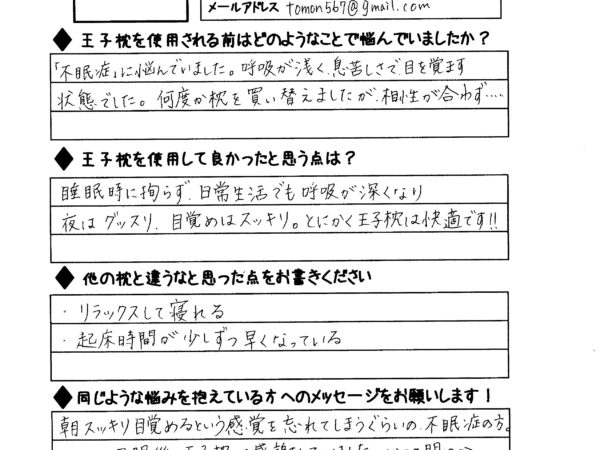 メールアドレス tomon567@gmail.com
◆ 王子枕を使用される前はどのようなことで悩んでいましたか？
「不眠症」に悩んでいました。呼吸が浅く、息苦しさで目を覚ます
状態でした。何度か枕を買い替えましたが、相性が合わず‥‥
◆ 王子枕を使用して良かったと思う点は？
睡眠時に拘らず、日常生活でも呼吸が深くなり
夜はグッスリ、目覚めはスッキリ。とにかく王子枕は快適です!!
◆ 他の枕と違うなと思った点をお書きください
・リラックスして寝れる
・起床時間が少しずつ早くなっている
◆ 同じような悩みを抱えている方へのメッセージをお願いします！
朝スッキリ目覚めるという感覚を忘れてしまうぐらいの、不眠症の方。